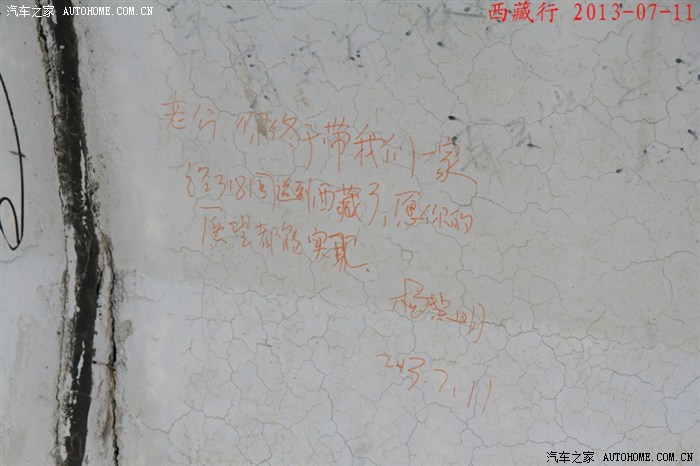 汽车之家 AUTOHOME.COM.CN
西藏行 2013-07-11
老公,你终于带我们一家
经318国道到西藏了,愿你的
愿望都能实现.
杨黎明
2013.7.11
汽车之家 AUTOHOME.COM.CN